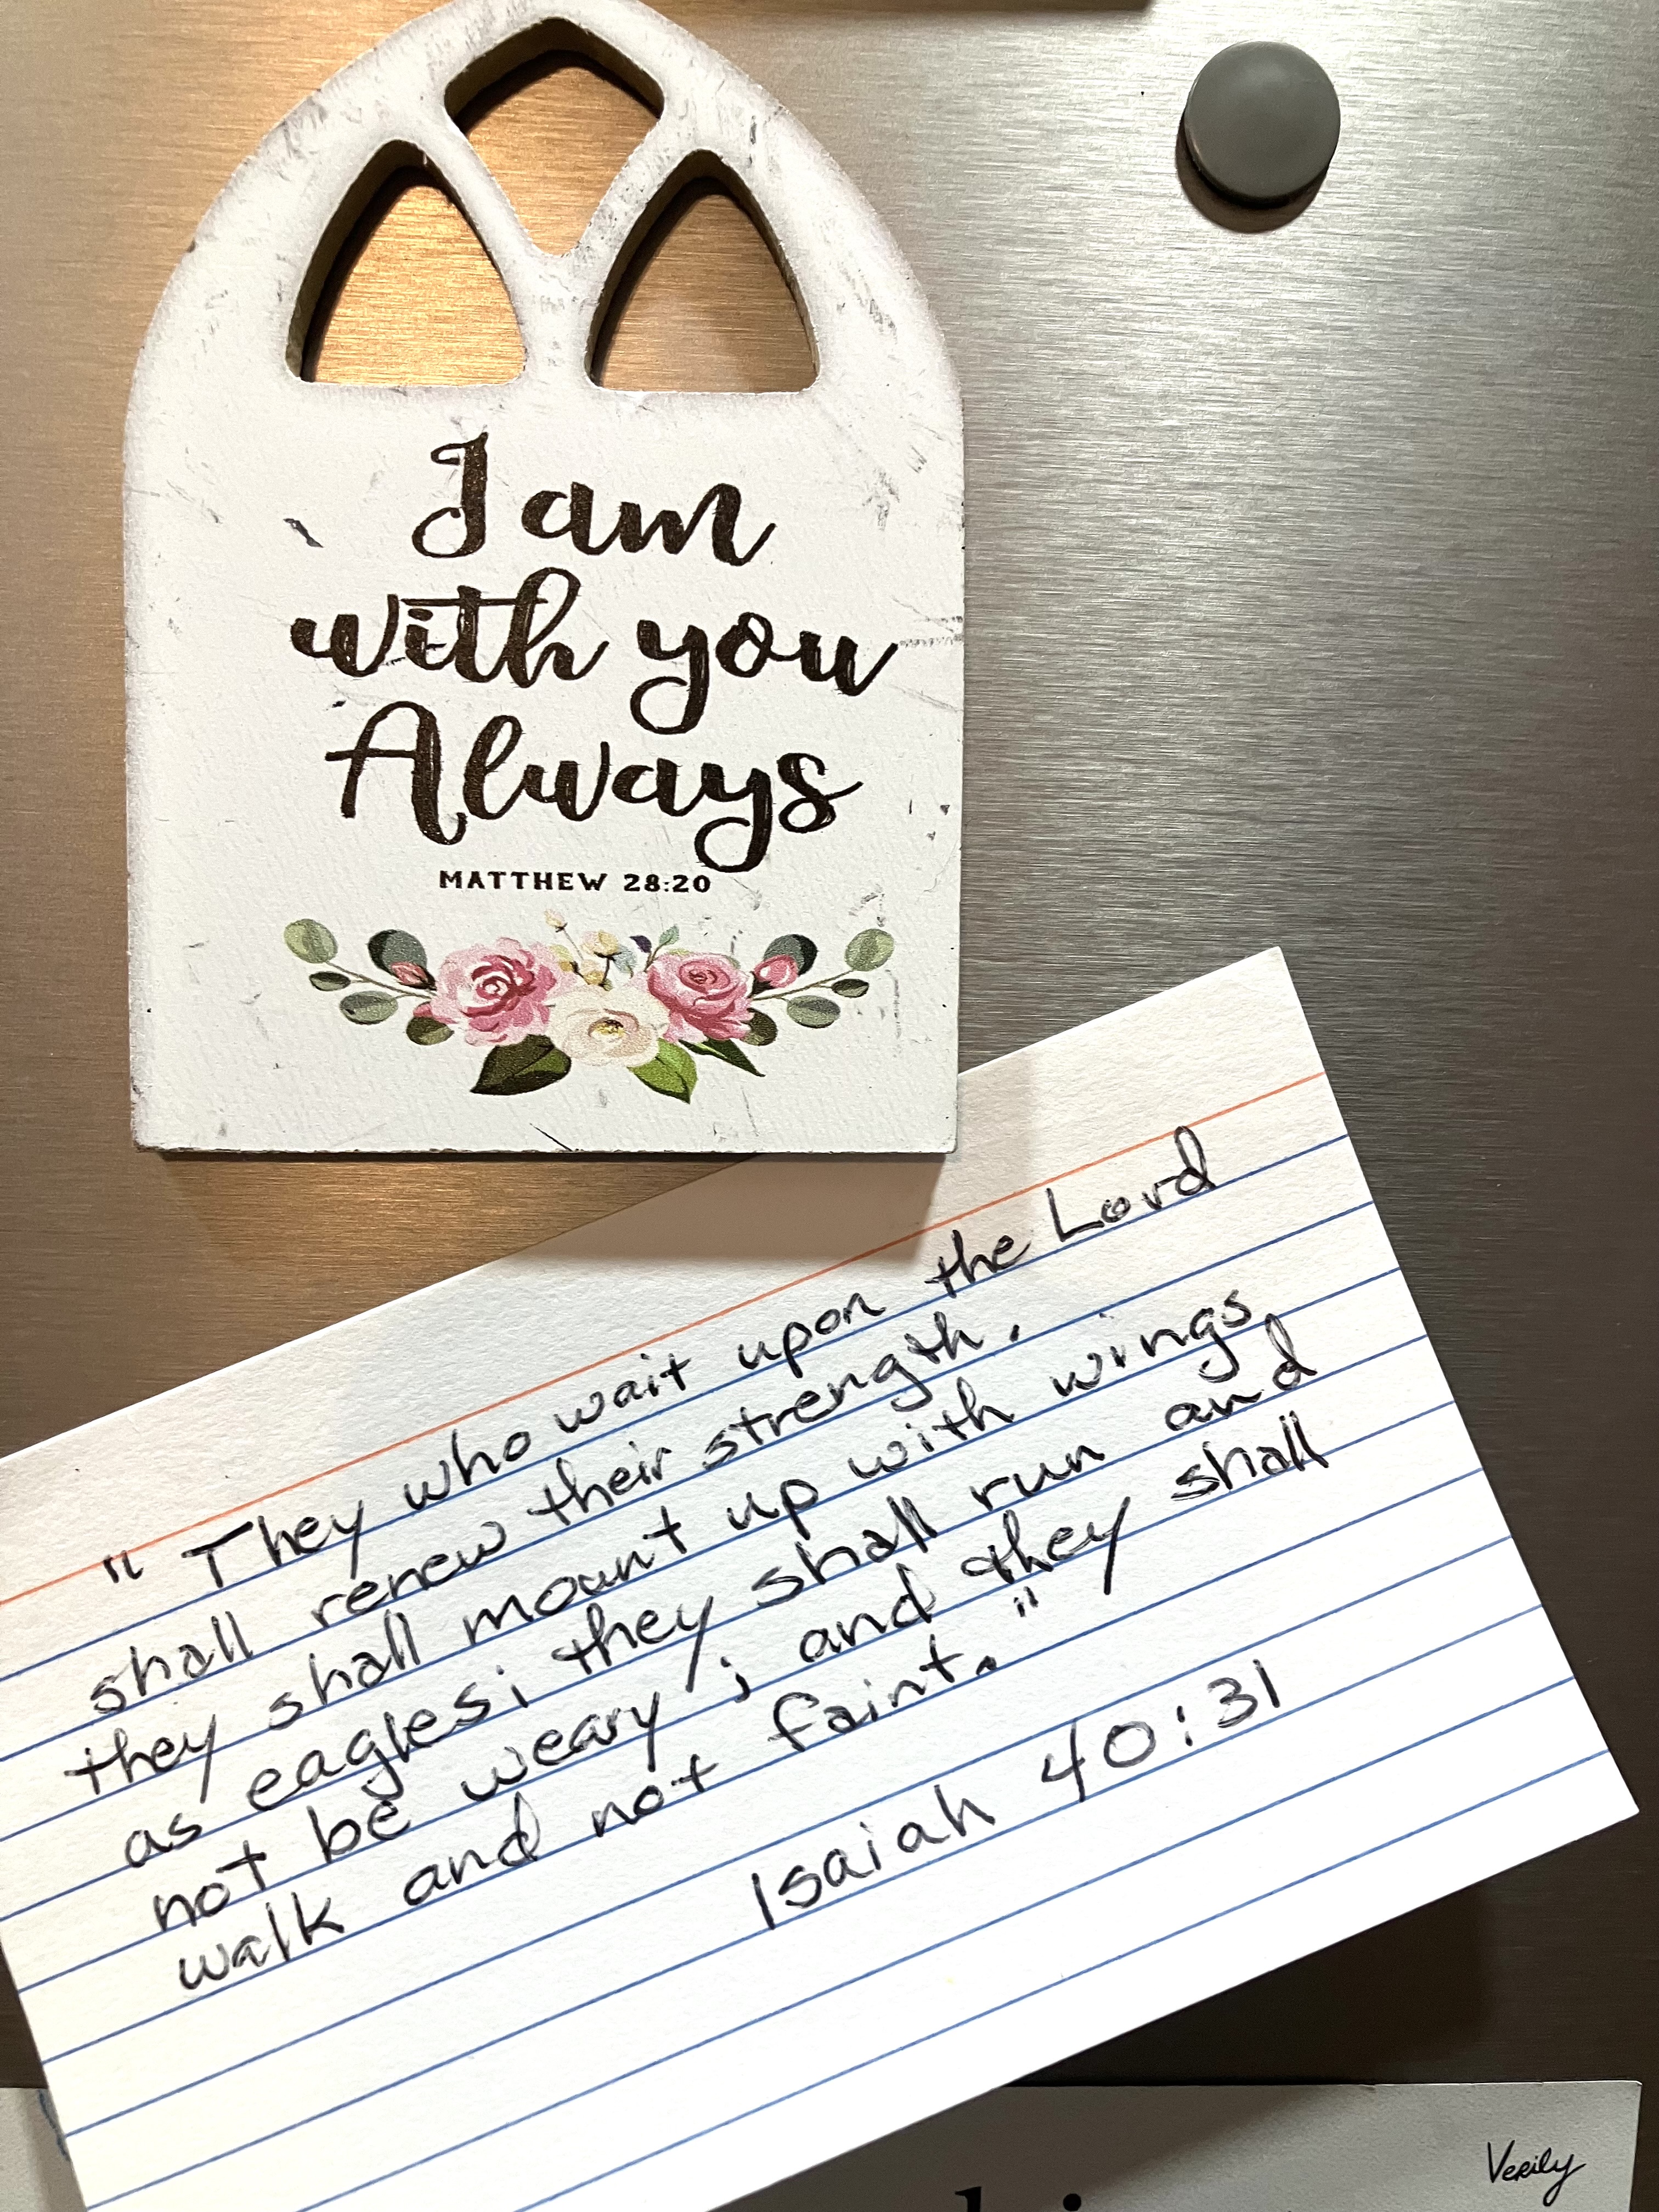 I am
with you
Always
MATTHEW 28:20
" They who wait upon the Lord
shall renew their strength.
they shall mount up with wings
as eagles; they shall run and
not be weary; and they shall
walk and not faint."
Isaiah 40:31
Verily